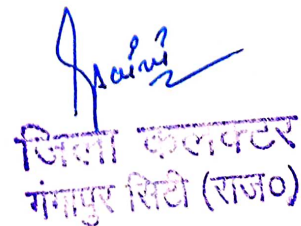 जिला कलक्टर
गंगापुर सिटी (राज०)